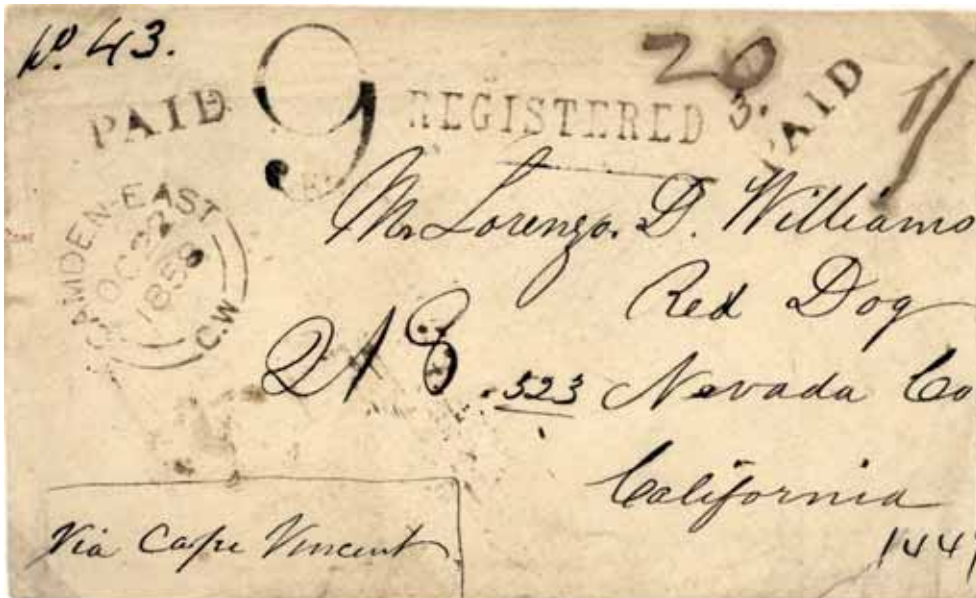 No. 43.
PAID 9 REGISTERED 20 3. PAID
CAMDEN-EAST
OC 27
1858
C.W
Mr Lorenzo. D. Williams
Red Dog
218 . 523 Nevada Co
California
Via Cape Vincent
1447